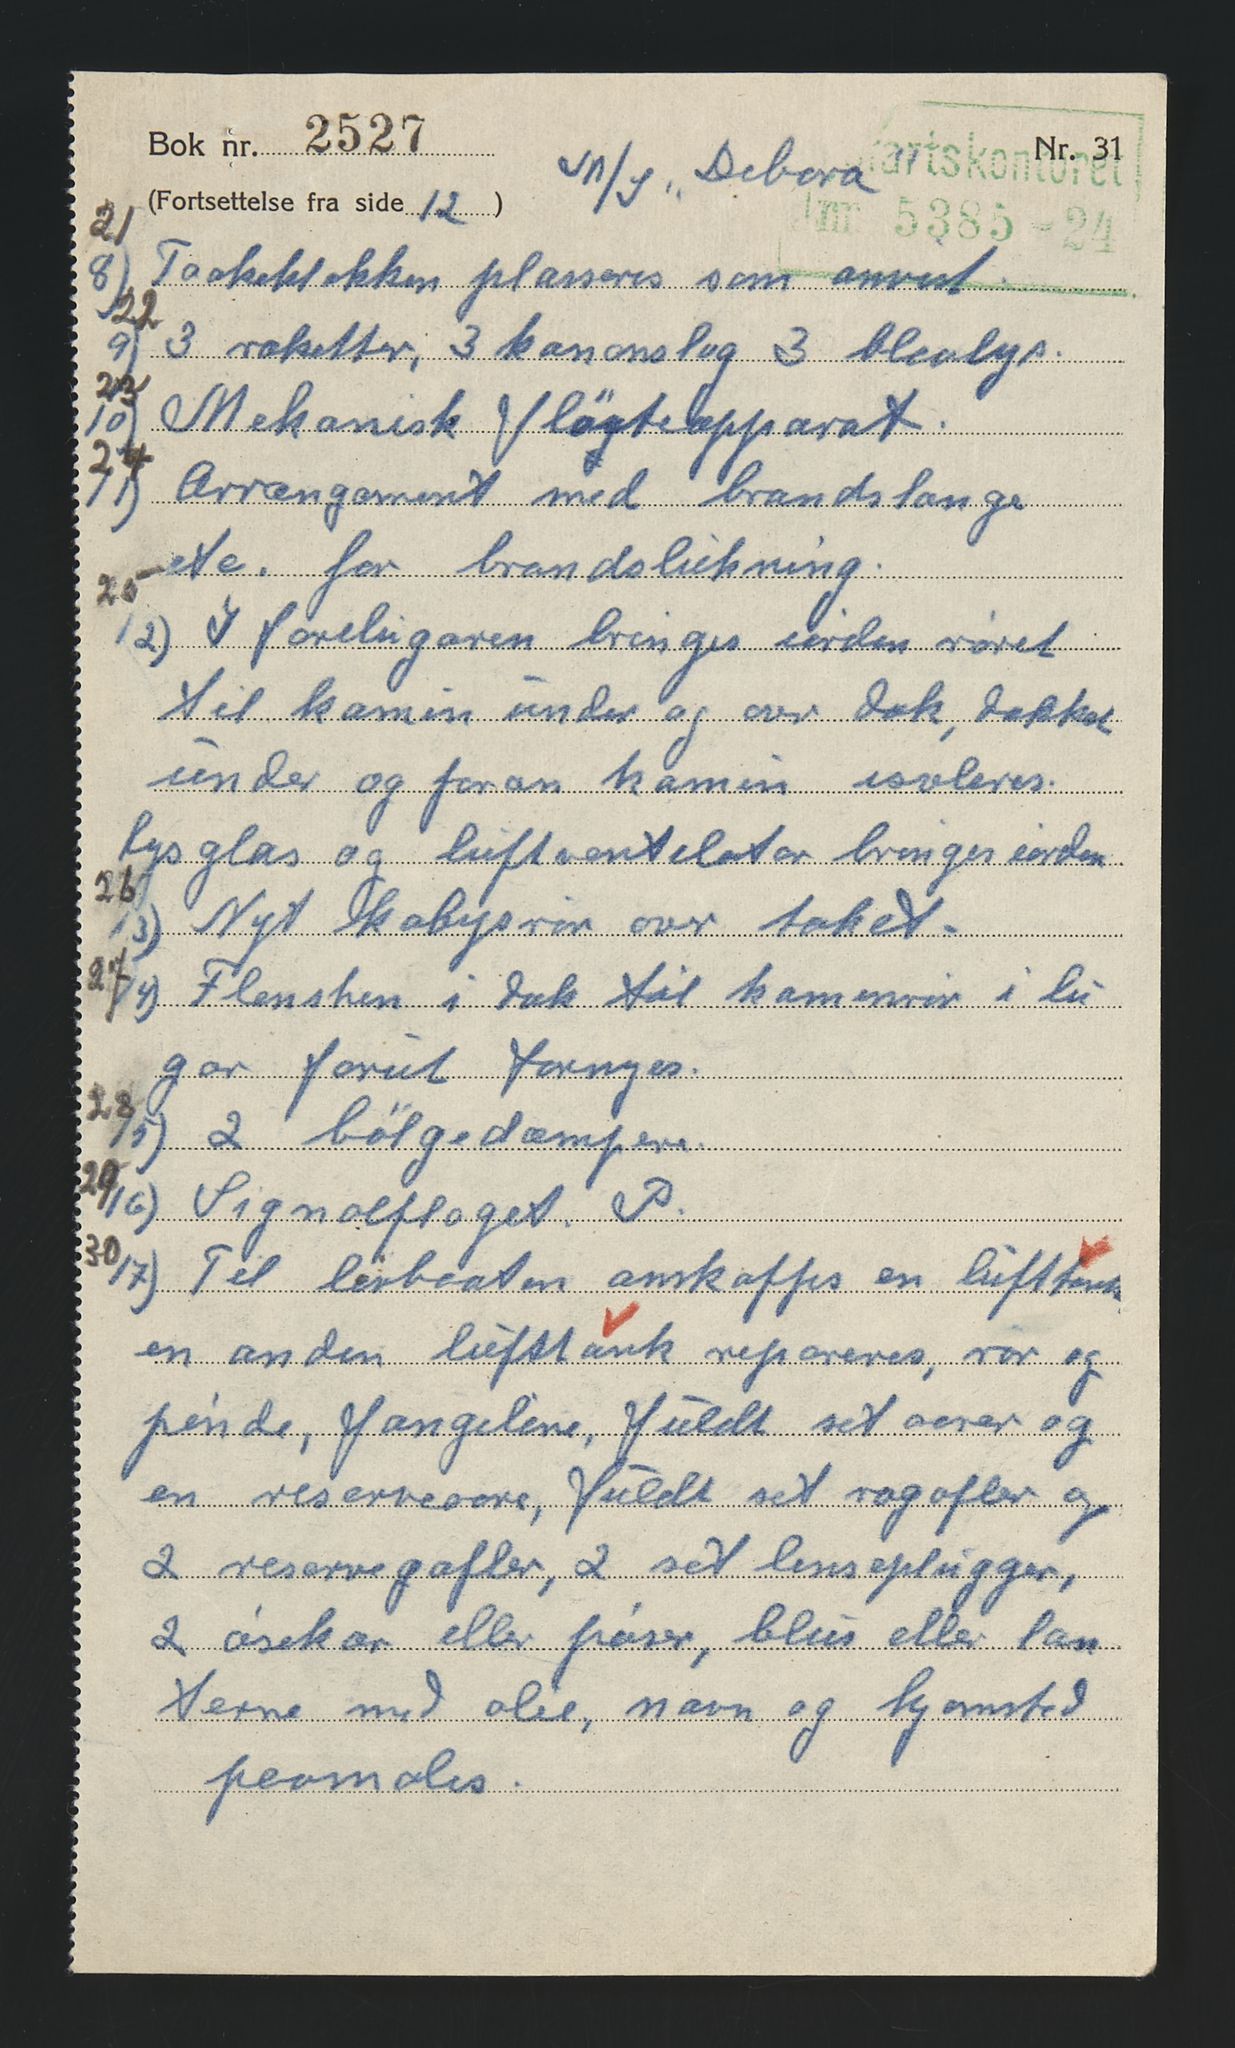 Bok nr. 2527 Nr. 31
M/S „Debora"
artskontoret
(Fortsettelse fra side 12)
nr 5385-24
21
8) Taakeklokken plasseres som anvist.
22
9) 3 raketter, 3 kanonslag 3 blaalys.
23
10) Mekanisk fløyteapparat.
24
11) Arrangement med brandslange
etc. for brandslukning.
25
12) I forelugaren bringes iorden röret
til kamin under og over dæk, dækket
under og foran kamin isoleres.
Lysglas og luftventilator bringes iorden
26
13) Nyt kabysrör over taket.
27
14) Flenshen i dæk til kaminrör i lu
gar forut fornyes.
28
15) 2 bölgedæmpere.
29
16) Signalflaget. P.
30
17) Til livbaaten anskaffes en lufttank
en anden lufttank repareres, ror og
pinde, fangeline, fuldt set aarer og
en reserveaare, fuldt set rogafler og
2 reservegafler, 2 set lenseplugger,
2 ösekar eller pöser, blus eller lan
terne med olie, navn og hjemsted
paamales.